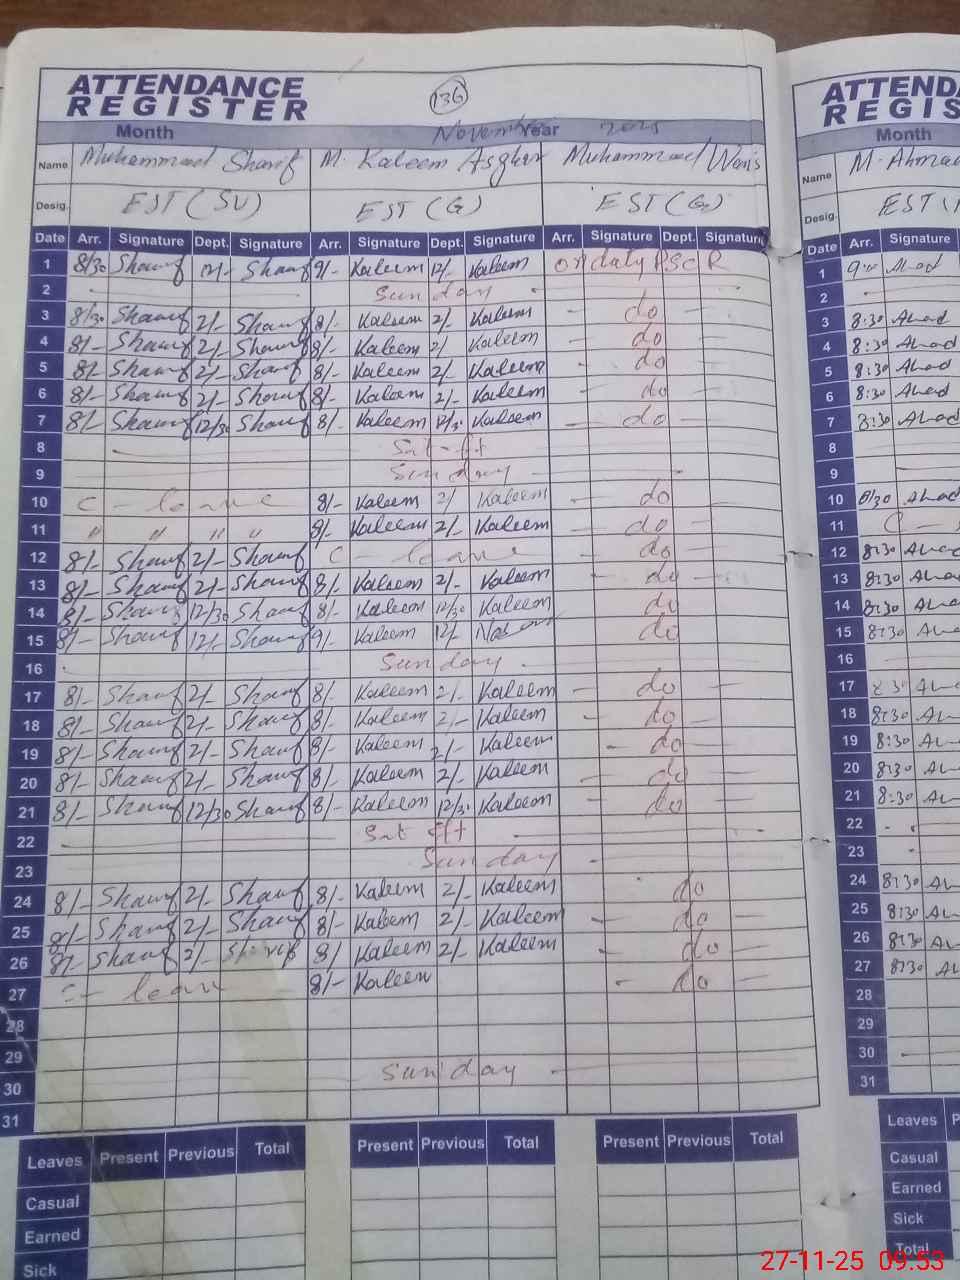 ATTENDANCE REGISTER
136
Month November Year 2025
Name Muhammad Sharif M. Kaleem Asghar Muhammad Waris
Desig. EST (SV) EST (G) EST (G)
Date Arr. Signature Dept. Signature Arr. Signature Dept. Signature Arr. Signature Dept. Signature
1 8/30 Sharif 12/- Sharif 9/- Kaleem 12/- Kaleem on duty PSCR
2 Sunday
3 8/30 Sharif 2/- Sharif 8/- Kaleem 2/- Kaleem - do -
4 8/- Sharif 2/- Sharif 8/- Kaleem 2/ Kaleem - do -
5 8/- Sharif 2/- Sharif 8/- Kaleem 2/- Kaleem - do -
6 8/- Sharif 2/- Sharif 8/- Kaleem 2/- Kaleem - do -
7 8/- Sharif 12/30 Sharif 8/- Kaleem 12/30 Kaleem - do -
8 Sat-ff
9 Sunday
10 C - leave 8/- Kaleem 2/ Kaleem - do -
11 " " " " 8/- Kaleem 2/- Kaleem - do -
12 8/- Sharif 2/- Sharif C - leave - do -
13 8/- Sharif 2/- Sharif 8/- Kaleem 2/- Kaleem - do -
14 8/- Sharif 12/30 Sharif 8/- Kaleem 12/30 Kaleem do
15 8/- Sharif 12/- Sharif 9/- Kaleem 12/- do
16 Sunday
17 8/- Sharif 2/- Sharif 8/- Kaleem 2/- Kaleem - do -
18 8/- Sharif 2/- Sharif 8/- Kaleem 2/- Kaleem - do -
19 8/- Sharif 2/- Sharif 8/- Kaleem 2/- Kaleem - do -
20 8/- Sharif 2/- Sharif 8/- Kaleem 2/- Kaleem - do -
21 8/- Sharif 12/30 Sharif 8/- Kaleem 12/30 Kaleem - do -
22 Sat ff
23 Sunday
24 8/- Sharif 2/- Sharif 8/- Kaleem 2/- Kaleem do
25 8/- Sharif 2/- Sharif 8/- Kaleem 2/- Kaleem - do -
26 8/- Sharif 2/- Sharif 8/ Kaleem 2/- Kaleem - do -
27 C - leave 8/- Kaleem - do -
28
29
30 Sunday
31
Leaves Present Previous Total Present Previous Total Present Previous Total
Casual
Earned
Sick
ATTENDA
REGIS
Month
Name M. Ahmad
Desig. EST
Date Arr. Signature
1 9:00 Ahmad
2
3 8:30 Ahmad
4 8:30 Ahmad
5 8:30 Ahmad
6 8:30 Ahmad
7 8:30 Ahmad
8
9
10 8/30 Ahmad
11 C -
12 8:30 Ahmad
13 8:30 Ahmad
14 8:30 Ahmad
15 8:30 Ahmad
16
17 8:30
18 8:30
19 8:30
20 8:30
21 8:30
22
23
24 8:30
25 8:30
26 8:30
27 8:30
28
29
30
31
Leaves P
Casual
Earned
Sick
Total
27-11-25 09:53